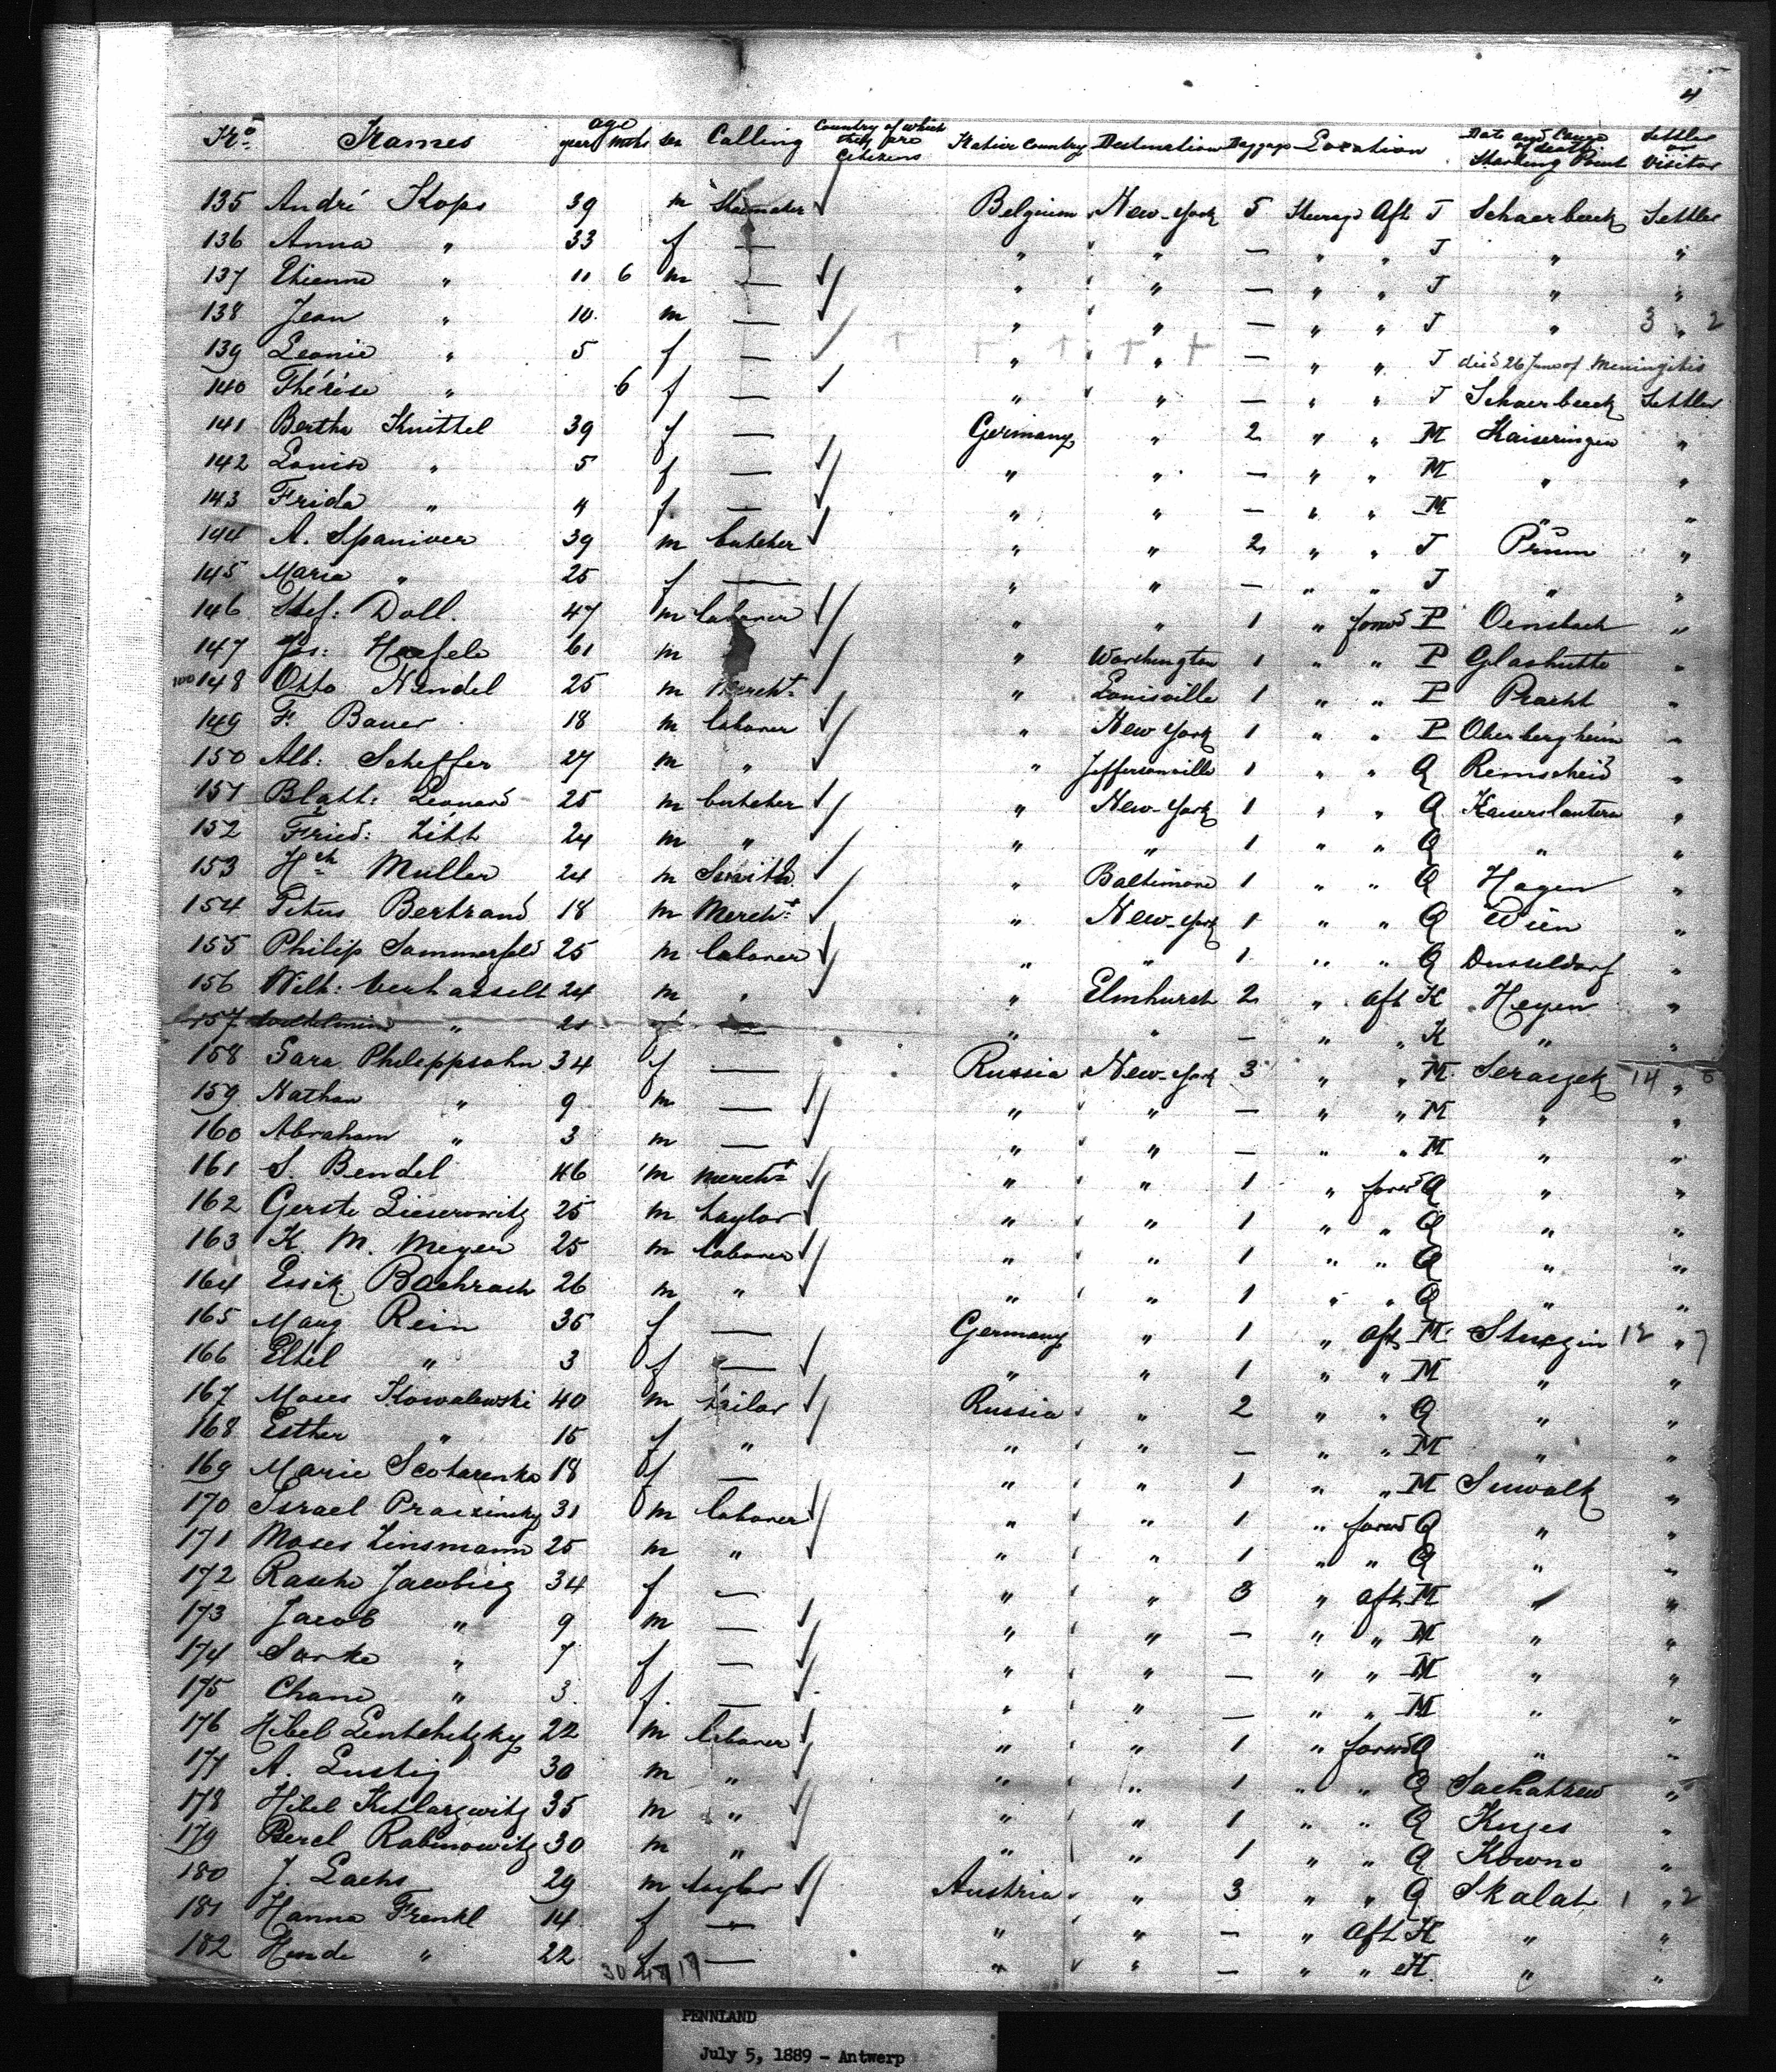 4
No. Names age years mths sex Calling Country of which they are Citizens Native Country Destination Baggage Location Date and Cause of death Starting Point Settler or Visitor
135 André Kops 39 m Shoemaker Belgium New-York 5 Steerage Aft J Schaerbeek Settler
136 Anna " 33 f — " " — " " J " "
137 Etienne " 11 6 m — " " — " " J " "
138 Jean " 10 m — " " — " " J " 3 " 2
139 Leonie " 5 f — " " — " " J died 26 June of Meningitis
140 Thérèse " 6 f — " " — " " J Schaerbeek Settler
141 Bertha Knittel 39 f — Germany " 2 " " M Kaiseringen "
142 Louise " 5 f — " " — " " M " "
143 Frida " 4 f — " " — " " M " "
144 A. Spaniver 39 m butcher " " 2 " " J Prüm "
145 Maria " 25 f — " " — " " J " "
146 Stef: Doll. 47 m laborer " " 1 " forwd P Oensbach "
147 Jos: Haefele 61 m " Washington 1 " " P Glashutte "
100 148 Otto Nendel 25 m Mercht " Louisville 1 " " P Pracht "
149 F. Bauer 18 m laborer " New York 1 " " P Oberbergheim "
150 Alb: Scheffer 27 m " " Jeffersonville 1 " " Q Remscheid "
151 Blatt: Leonard 25 m butcher " New-York 1 " " Q Kaiserslautern "
152 Fried: Litt 24 m " " " 1 " " Q " "
153 Hch Muller 24 m Smith " Baltimore 1 " " Q Hagen "
154 Titus Bertrand 18 m Mercht " New-York 1 " " Q Wien "
155 Philip Sammerfeld 25 m laborer " " 1 " " Q Dusseldorf "
156 Wilh: Verhasselt 24 m " " Elmhurst 2 " Aft K Heyen "
157 Wilhelmine " 21 f — " " — " " K " "
158 Sara Philippsohn 34 f — Russia New-York 3 " " M Seraejek 14 " 6
159 Nathan " 9 m — " " — " " M " "
160 Abraham " 3 m — " " — " " M " "
161 S. Bendel 46 m mercht " " 1 " forwd Q " "
162 Gerste Lieserowitz 25 m taylor " " 1 " " Q " "
163 K. M. Meyer 25 m laborer " " 1 " " Q " "
164 Essik Bachrach 26 m " " " 1 " " Q " "
165 Marg Rein 35 f — Germany " 1 " aft M Stuczin 12 " 7
166 Ettel " 3 f — " " 1 " " M " "
167 Moses Kowalewski 40 m tailor Russia " 2 " " Q " "
168 Esther " 15 f " " " — " " M " "
169 Marie Scotarenko 18 f — " " 1 " " M Suwalk "
170 Israel Praezinsky 31 m laborer " " 1 " forwd Q " "
171 Moses Linsmann 25 m " " " 1 " " Q " "
172 Rasche Jacobieg 34 f — " " 3 " aft M " "
173 Jacob " 9 m — " " — " " M " "
174 Sorke " 7 f — " " — " " M " "
175 Chane " 3 f. — " " — " " M " "
176 Hibel Lentchitzky 22 m laborer " " 1 " forwd Q " "
177 A. Lustig 30 m " " " 1 " " Q Sachatzew "
178 Hibel Kutlarzwitz 35 m " " " 1 " " Q Knyes "
179 Berel Rabinowitz 30 m " " " 1 " " Q Kowno "
180 J. Lachs 29 m taylor Austria " 3 " " Q Skalat 1 " 2
181 Hanna Frenkl 14 f — " " — " Aft K " "
182 Hende " 22 f — " " — " " K. " "
30 48 17
PENNLAND
July 5, 1889 - Antwerp